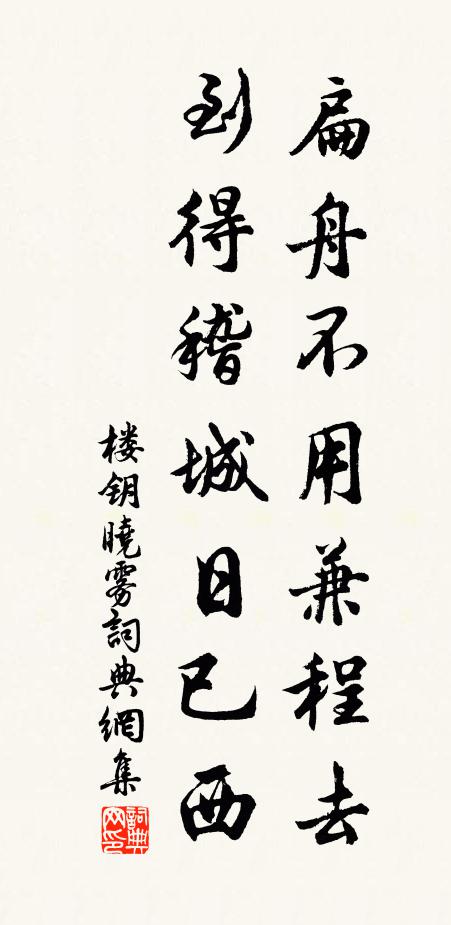 扁舟不用兼程去
到得稽城日已西
楼钥曉雾詞典網集
詞典网印